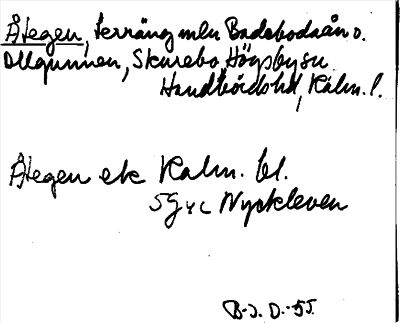 Åtegen, terräng mln Badebodaån o.
Allgunnen, Skurebo, Högsby sn
Handbörds hd, Kalm. l.
Åtegen ek Kalm. bl.
5G4c Nyckleven
B-J. D.-55.